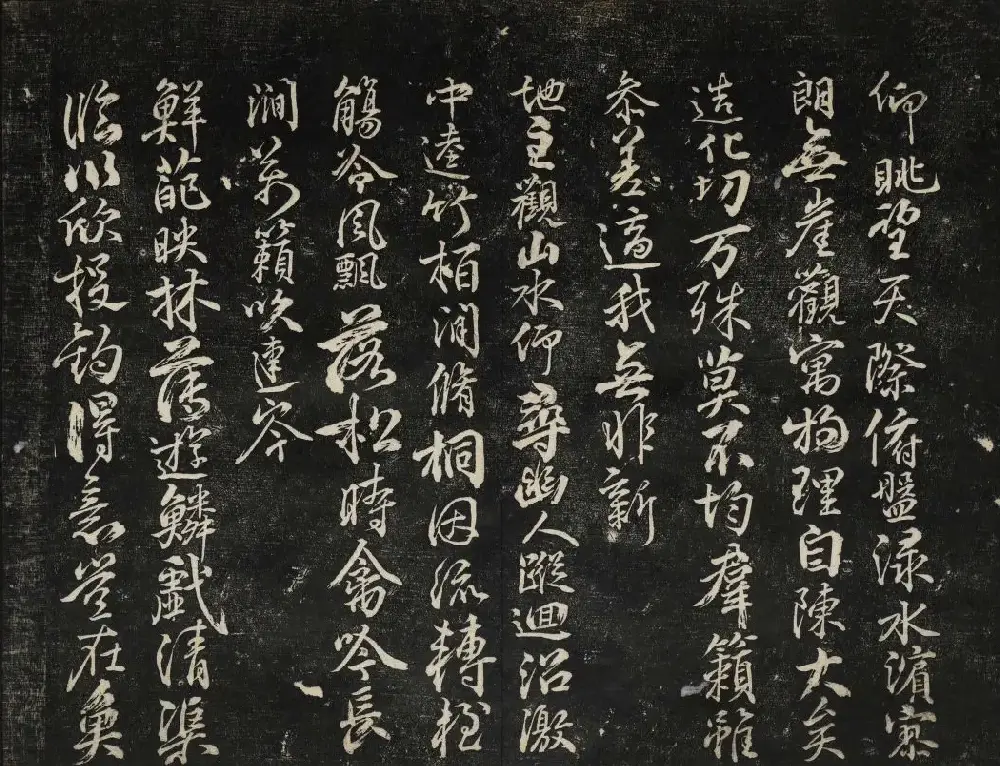 仰眺望天際俯盤渌水濱寥
朗無崖觀寓物理自陳大矣
造化功万殊莫不均羣籟雖
叅差適我無非新
地主觀山水仰尋幽人蹤迴沼激
中逵竹栢間脩桐因流轉輕
觴冷風飄落松時禽吟長
澗萬籟吹連岑
鮮葩映林薄遊鱗戲清渠
臨川欣投釣得意豈在魚